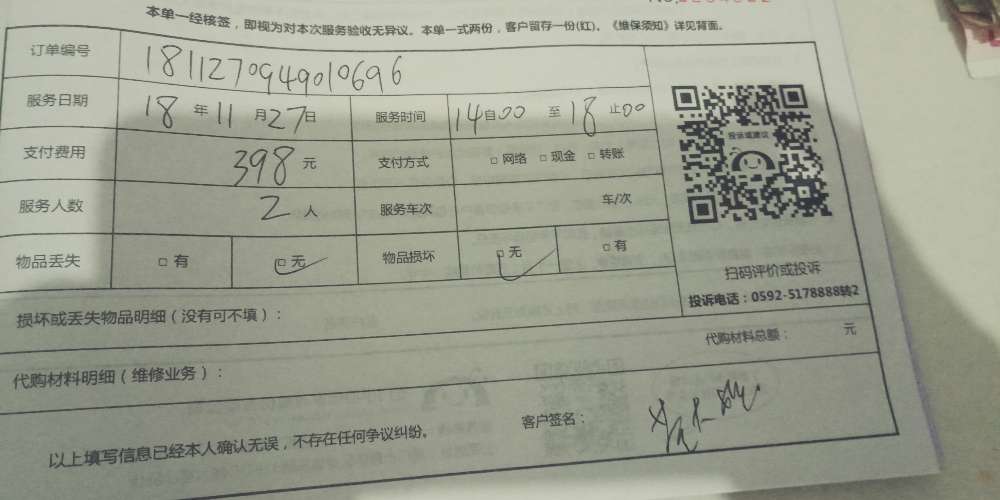 本单一经核签，即视为对本次服务验收无异议。本单一式两份，客户留存一份(红)。《维保须知》详见背面。
订单编号 1811270949010696
服务日期 18 年 11 月 27 日 服务时间 14 自 00 至 18 止 00
支付费用 398 元 支付方式 □ 网络 □ 现金 □ 转账
投诉或建议
服务人数 2 人 服务车次 车/次
物品丢失 □ 有 □ 无 物品损坏 □ 无 □ 有
扫码评价或投诉
投诉电话：0592-5178888转2
损坏或丢失物品明细（没有可不填）：
代购材料总额： 元
代购材料明细（维修业务）：
客户签名：
以上填写信息已经本人确认无误，不存在任何争议纠纷。